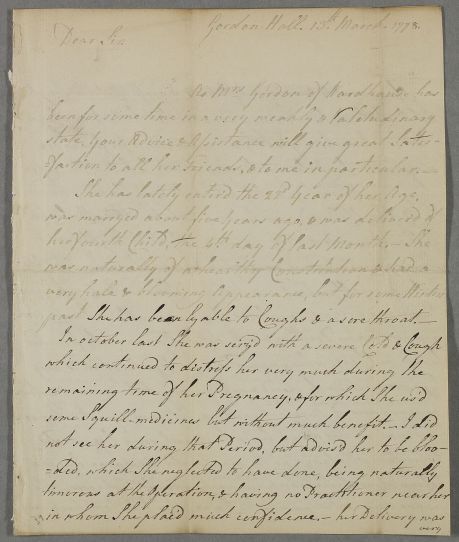 Gordon Hall. 13th March. 1778.
Dear Sir
As Mrs Gordon of Wardhouse has
been for some time in a very weakly & Valetudinary
state, Your Advice & Assistance will give great Satis-
-faction to all her friends, & to me in particular. —
She has lately enterd the 22d Year of her Age,
was marryed about five years ago, & was deliver'd of
her fourth Child, the 4th day of last Month. — She
was naturally of a healthy Constitution & had a
very hale & blooming Appearance, but for some Winters
past She has been lyable to Coughs & a sore throat. —
In october last She was seiz'd with a severe Cold & Cough
which continued to distress her very much during the
remaining time of her Pregnancy, & for which She us'd
some Squill-medicines but without much benefit. — I did
not see her during that Period, but advis'd her to be bloo-
-ded, which She neglected to have done, being naturally
timorous at the Operation, & having no Practitioner near her
in whom She plac'd much confidence. — her Delivery was
very